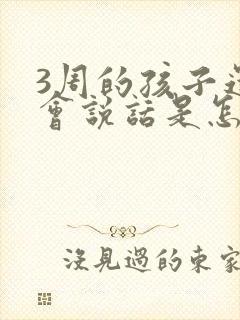 3周的孩子還
會說話是怎
沒見過的東家